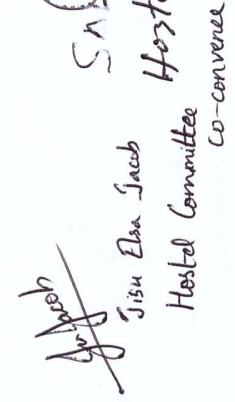 Jisu Elsa Jacob
Hostel Committee
Co-convener